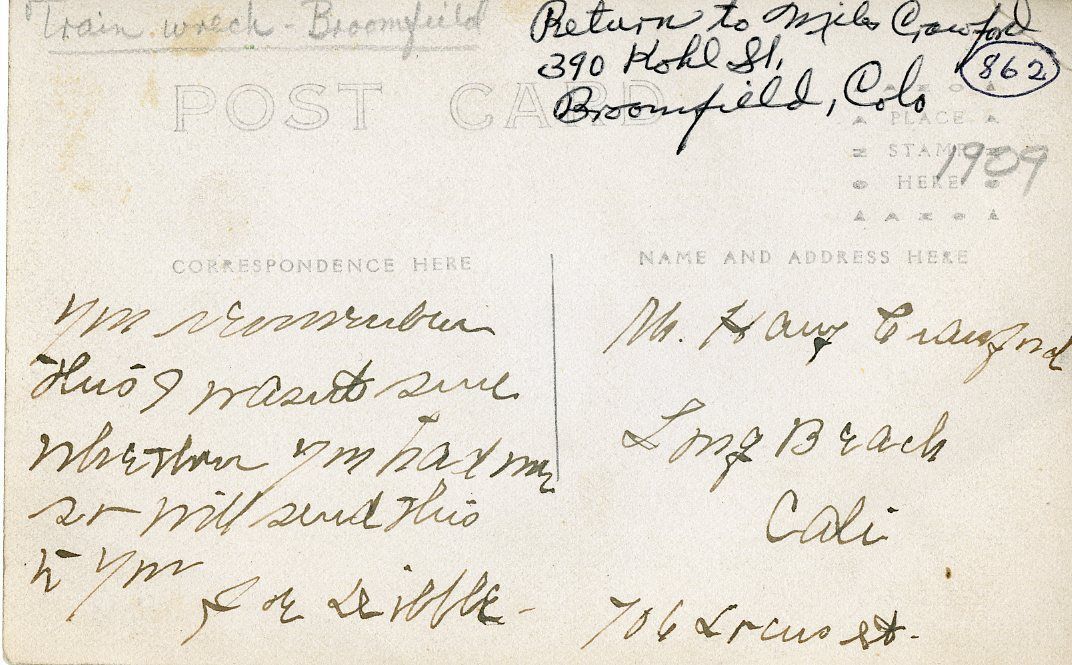 Train wreck Broomfield
Return to Miles Crawford
390 Kohl St.
862
Broomfield, Colo
POST CARD
PLACE
STAMP
HERE
1909
CORRESPONDENCE HERE
NAME AND ADDRESS HERE
You remember
this I wasnt sure
whether you had one
so will send this
to you
Joe
Mr. Harry Crawford
Long Beach
Cali
706 Locus st.